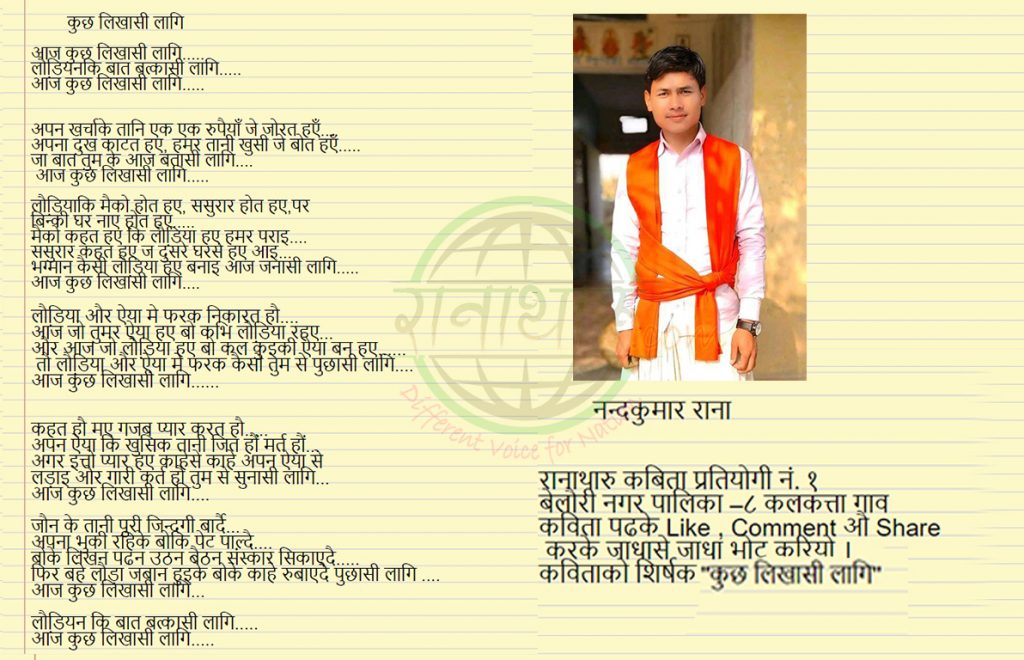 कुछ लिखासी लागि
आज कुछ लिखासी लागि.....
लौडियनकि बात बत्कासी लागि.....
आज कुछ लिखासी लागि.....
अपन खर्चाके तानि एक एक रुपैयाँ जे जोरत हएँ....
अपना दुख काटत हएं, हमर तानी खुसी जे बोत हएँ.....
जा बात तुम के आज बतासी लागि....
आज कुछ लिखासी लागि.....
लौडियाकि मैको होत हए, ससुरार होत हए,पर
बिन्की घर नाए होत हए.....
मैको कहत हए कि लौडिया हए हमर पराइ....
ससुरार कहत हए ज दुसरे घरसे हए आइ...
भग्मान कैसी लौडिया हए बनाइ आज जनासी लागि.....
आज कुछ लिखासी लागि....
लौडिया और ऐया मे फरक निकारत हौ....
आज जो तुमर ऐया हए बो कभि लौडिया रहए...
और आज जो लौडिया हए बो कल कुइकी ऐया बन हए......
तौ लौडिया और ऐया मे फरक कैसो तुम से पुछासी लागि....
आज कुछ लिखासी लागि......
कहत हौ मए गजब प्यार करत हौ....
अपन ऐया कि खुसिक तानी जित हौं मर्त हौं...
अगर इत्तो प्यार हए काहेसे काहे अपन ऐया से
लडाइ और गारी कर्त हौ तुम से सुनासी लागि...
आज कुछ लिखासी लागि....
जौन के तानी पुरी जिन्दगी बार्दै...
अपना भुकी रहिके बोकि पेट पाल्दै....
बोके लिखन पढन उठन बैठन संस्कार सिकाएदै.....
फिर बहे लौडा जबान हुइके बोके काहे रुबाएदै पुछासी लागि ....
आज कुछ लिखासी लागि...
लौडियन कि बात बत्कासी लागि.....
आज कुछ लिखासी लागि.....
नन्दकुमार राना
रानाथारु कबिता प्रतियोगी नं. १
बेलौरी नगर पालिका –८ कलकत्ता गाव
कविता पढके Like , Comment औ Share
करके जाधासे जाधा भोट करियो ।
कविताको शिर्षक "कुछ लिखासी लागि"
रानाथारु
Different Voice for